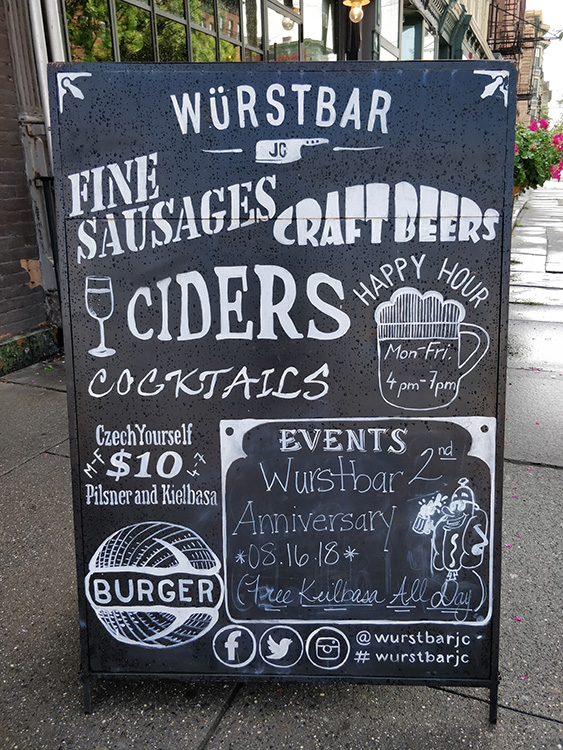 WÜRSTBAR
JC
FINE
SAUSAGES
CRAFT BEERS
CIDERS
HAPPY HOUR
Mon-Fri.
4pm-7pm
COCKTAILS
Czech Yourself
M-F $10 4-7
Pilsner and Kielbasa
BURGER
EVENTS
Wurstbar 2nd
Anniversary
*08.16.18*
(Free Keilbasa All Day)
@wurstbarjc
#wurstbarjc